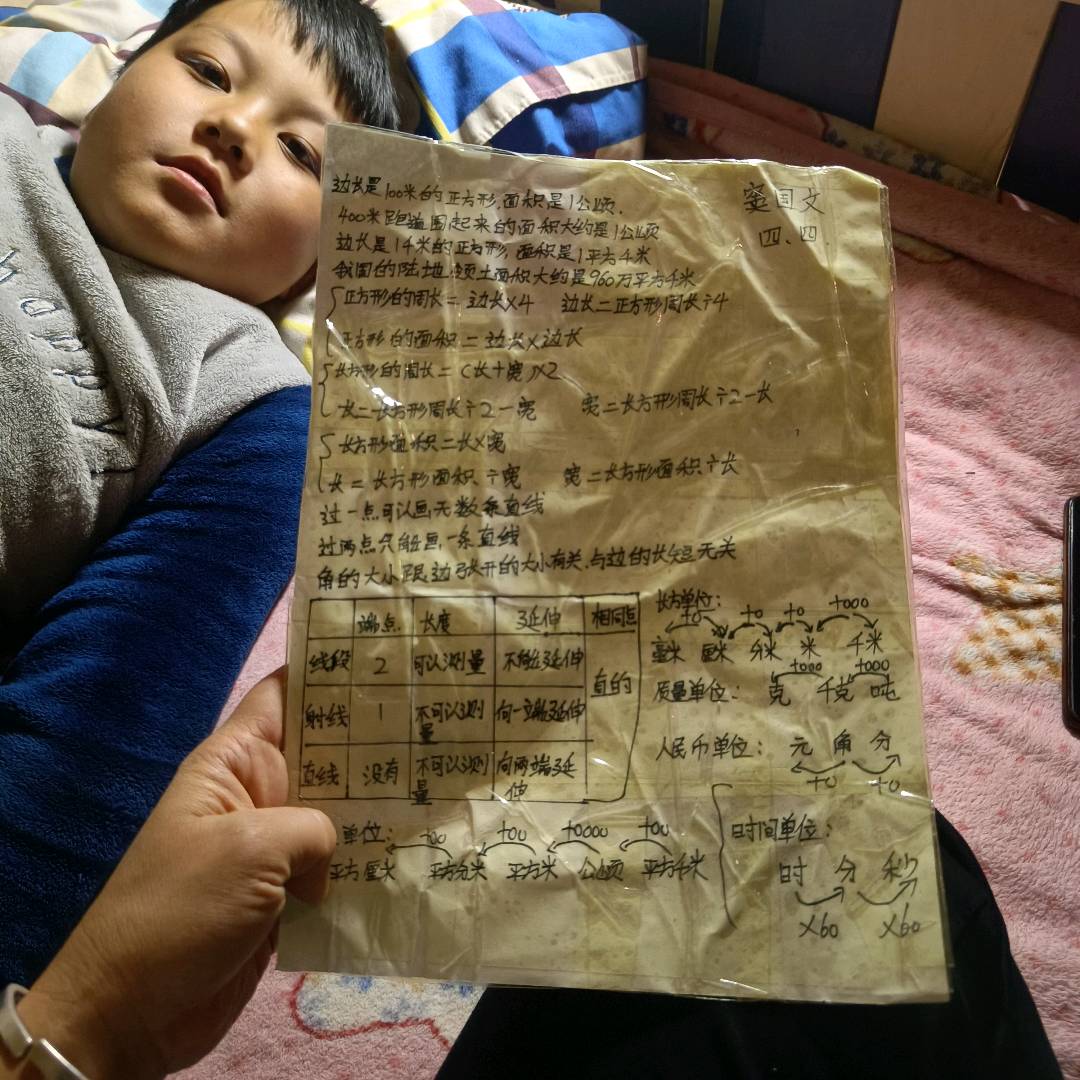 边长是100米的正方形,面积是1公顷.
400米跑道围起来的面积大约是1公顷
边长是1千米的正方形,面积是1平方千米
我国的陆地领土面积大约是960万平方千米
国文
四、四
正方形的周长=边长×4 边长=正方形周长÷4
正方形的面积=边长×边长
长方形的周长=(长+宽)×2
长=长方形周长÷2-宽 宽=长方形周长÷2-长
长方形面积=长×宽
长=长方形面积÷宽 宽=长方形面积÷长
过一点可以画无数条直线
过两点只能画一条直线
角的大小跟边张开的大小有关,与边的长短无关
端点 长度 延伸 相同点
线段 2 可以测量 不能延伸 直的
射线 1 不可以测量 向一端延伸
直线 没有 不可以测量 向两端延伸
长方单位:
÷10 ÷10 ÷10 ÷1000
毫米 厘米 分米 米 千米
÷1000 ÷1000
质量单位: 克 千克 吨
人民币单位: 元 角 分
÷10 ÷10
单位: ÷100 ÷100 ÷10000 ÷100
平方厘米 平方分米 平方米 公顷 平方千米
时间单位:
时 分 秒
×60 ×60